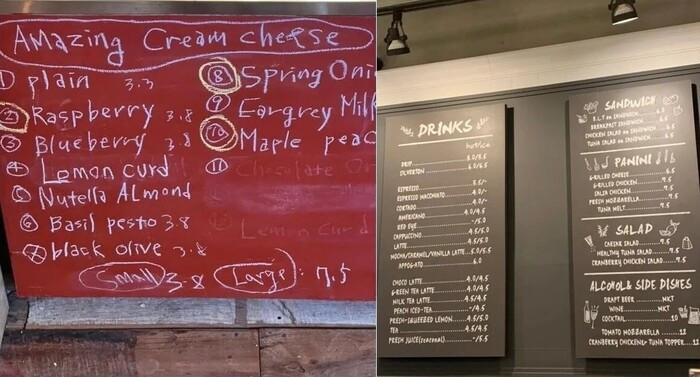 Amazing Cream cheese
① plain 3.3
② Raspberry 3.8
③ Blueberry 3.8
④ Lemon curd
⑤ Nutella Almond
⑥ Basil pesto 3.8
⑦ black olive 3.8
Small 3.8 Large: 7.5
⑧ Spring Oni
⑨ Eargrey Milk
⑩ Maple peac
⑪ Chocolate Or
Lemon curd
DRINKS
hot/ice
DRIP 5.0/5.5
SILVERTON 6.0/6.5
ESPRESSO 3.5/-
ESPRESSO MACCHIATO 4.0/-
CORTADO 4.0/-
AMERICANO 4.0/4.5
RED EYE -/5.0
CAPPUCCINO 4.5/5.0
LATTE 4.5/5.0
MOCHA/CARAMEL/VANILLA LATTE 5.0/5.5
AFFOGATO 6.0
CHOCO LATTE 4.0/4.5
GREEN TEA LATTE 4.0/4.5
MILK TEA LATTE 4.0/4.5
PEACH ICED-TEA -/4.5
FRESH-SQUEEZED LEMON 4.5/5.0
TEA 4.5/4.5
FRESH JUICE(seasonal) -/5.5
SANDWICH
B.L.T on SANDWICH 6.5
BREAKFAST SANDWICH 6.5
CHICKEN SALAD on SANDWICH 7.5
TUNA SALAD on SANDWICH 7.5
PANINI
GRILLED CHEESE 6.5
GRILLED CHICKEN 7.5
SALSA CHICKEN 7.5
FRESH MOZZARELLA 7.5
TUNA MELT 7.5
SALAD
CAESAR SALAD 7.5
HEALTHY TUNA SALAD 9.5
CRANBERRY CHICKEN SALAD 9.5
ALCOHOL & SIDE DISHES
DRAFT BEER MKT
WINE MKT
COCKTAIL 10
TOMATO MOZZARELLA 12
CRANBERRY CHICKEN & TUNA TOPPER 12